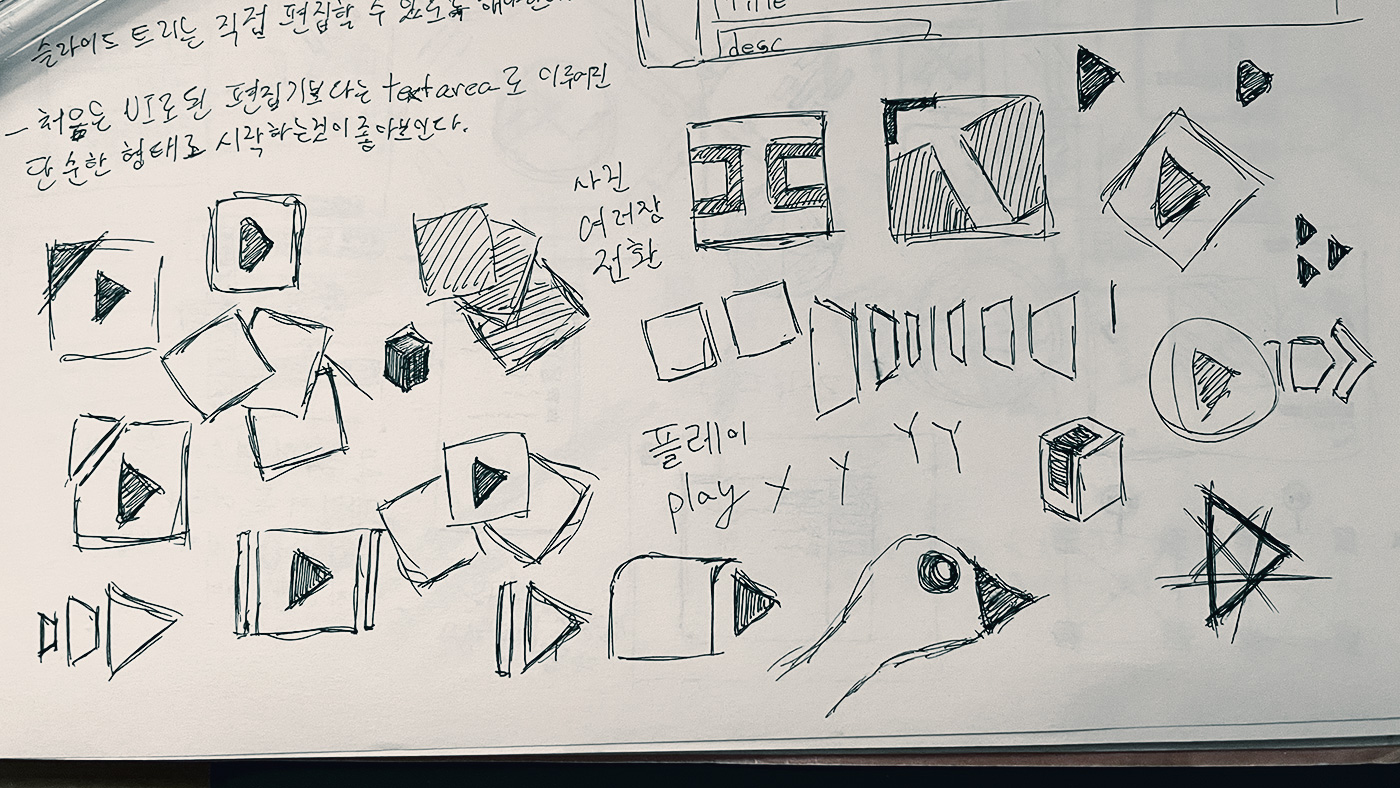 슬라이드 트리는 직접 편집할 수 있도록
- 처음은 UI로 된 편집기보다는 textarea로 이루어진
단순한 형태로 시작하는것이 좋아보인다.
Title
desc
사진
여러장
전환
플레이
play Y Y Y Y